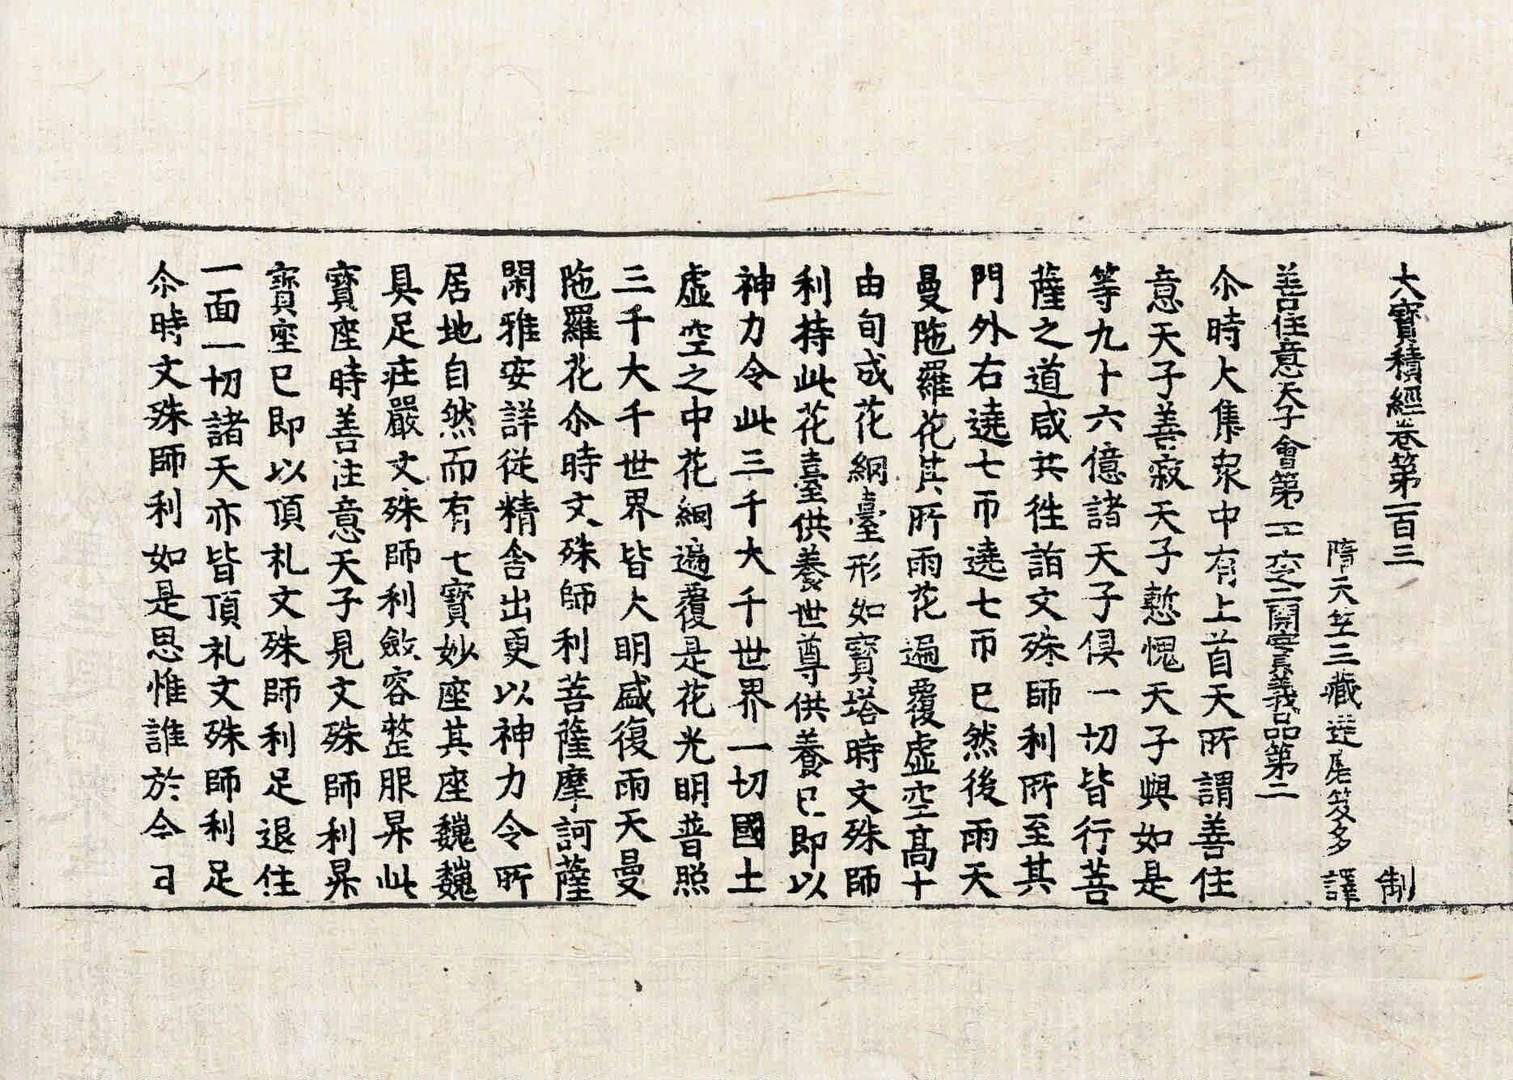 大寶積經卷第一百三　制
隋天竺三藏達磨笈多　譯
善住意天子會第三十六之二開實義品第二
尒時大集眾中有上首天所謂善住
意天子善寂天子慙愧天子與如是
等九十六億諸天子俱一切皆行菩
薩之道咸共往詣文殊師利所至其
門外右遶七帀遶七帀已然後雨天
曼陁羅花其所雨花遍覆虛空高十
由旬成花網臺形如寶塔時文殊師
利持此花臺供養世尊供養已即以
神力令此三千大千世界一切國土
虛空之中花網遍覆是花光明普照
三千大千世界皆大明盛復雨天曼
陁羅花尒時文殊師利菩薩摩訶薩
閑雅安詳從精舍出更以神力令所
居地自然而有七寶妙座其座巍巍
具足庄嚴文殊師利斂容整服昇此
寶座時善住意天子見文殊師利昇
寶座已即以頂礼文殊師利足退住
一面一切諸天亦皆頂礼文殊師利足
尒時文殊師利如是思惟誰於今日